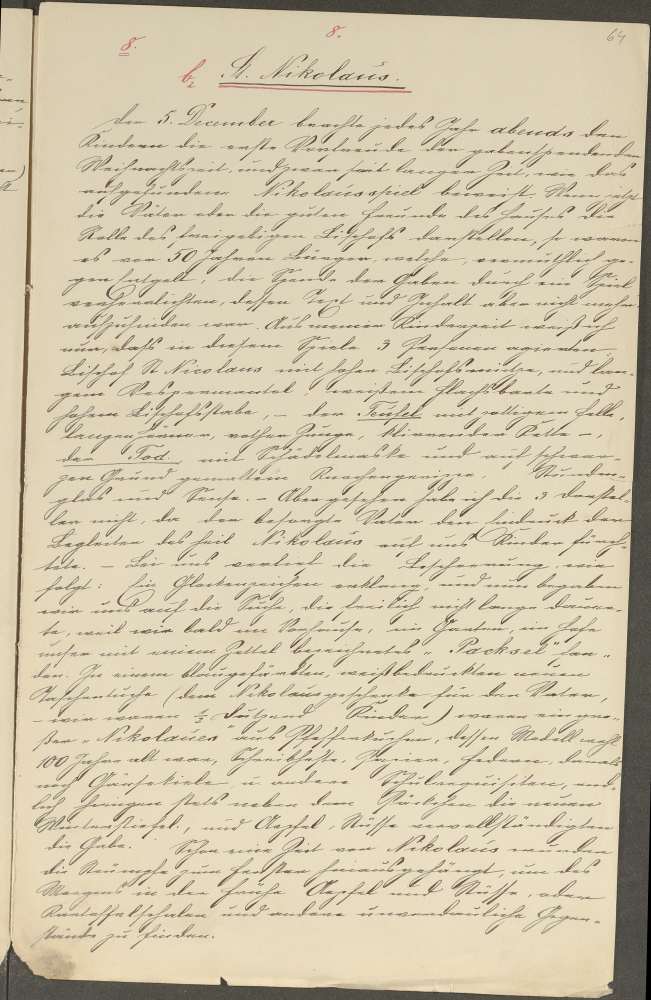 8. 8. 64
b, St. Nikolaus.
Der 5. December brachte jedes Jahr abends den
Kindern die erste Vorfreude der gabenspendenden
Weihnachtszeit, und zwar seit langer Zeit, wie das
aufgefundene Nikolausspiel beweist. Wenn jetzt
die Väter oder die guten Freunde des Hauses die
Rolle des freigebigen Bischofs darstellen, so waren
es vor 50 Jahren Bürger, welche, vermuthlich ge-
gen Entgelt, die Spende der Gaben durch ein Spiel
verherrlichten, dessen Text und Gehalt aber nicht mehr
aufzufinden war. Aus meiner Kinderzeit weiß ich
nur, dass in diesem Spiele 3 Personen agierten,
Bischof St Nicolaus mit hoher Bischofsmütze, und lan-
gem Vespermantel, weißem Flachsbarte und
hohem Bischofsstabe, – der Teufel mit zottigem Felle,
langen Hörner, rother Zunge, klirrender Kette –,
der Tod mit Schädelmaske und auf schwar-
zen Grund gemaltem Knochengerippe, Stunden-
glas und Sense. – Aber gesehen habe ich die 3 Darstel-
ler nicht, da der besorgte Vater den Eindruck der
Begleiter des heil Nikolaus auf uns Kinder fürch-
tete. – Bei uns verlief die Bescheerung, wie
folgt: Ein Glockenzeichen erklang, und nun begaben
wir uns auf die Suche, die freilich nicht lange dauer-
te, weil wir bald im Vorhause, im Garten, im Hofe
unser mit einem Zettel bezeichnetes „Packsel" fan-
den. In einem blaugefärbten, weißbedruckten neuen
Taschentuche (dem Nikolausgeschenke für den Vater,
– wir waren ½ Dutzend Kinder) waren ein gro-
ßer „Nikolaus" aus Pfefferkuchen, dessen Modell wohl
100 Jahre alt war, Schreibhefte, Papier, Federn, damals
noch Gänsekiele u. andere Schulrequisiten, end-
lich hingen stets neben dem Päckchen die neuen
Winterstiefel, und Aepfel, Nüsse vervollständigten
die Gabe. Schon eine Zeit vor Nikolaus wurden
die Strümpfe zum Fenster hinausgehängt, um des
Morgens in der Frühe Aepfel und Nüsse, oder
Kartoffelschalen und andere unverdauliche Gegen-
stände zu finden.